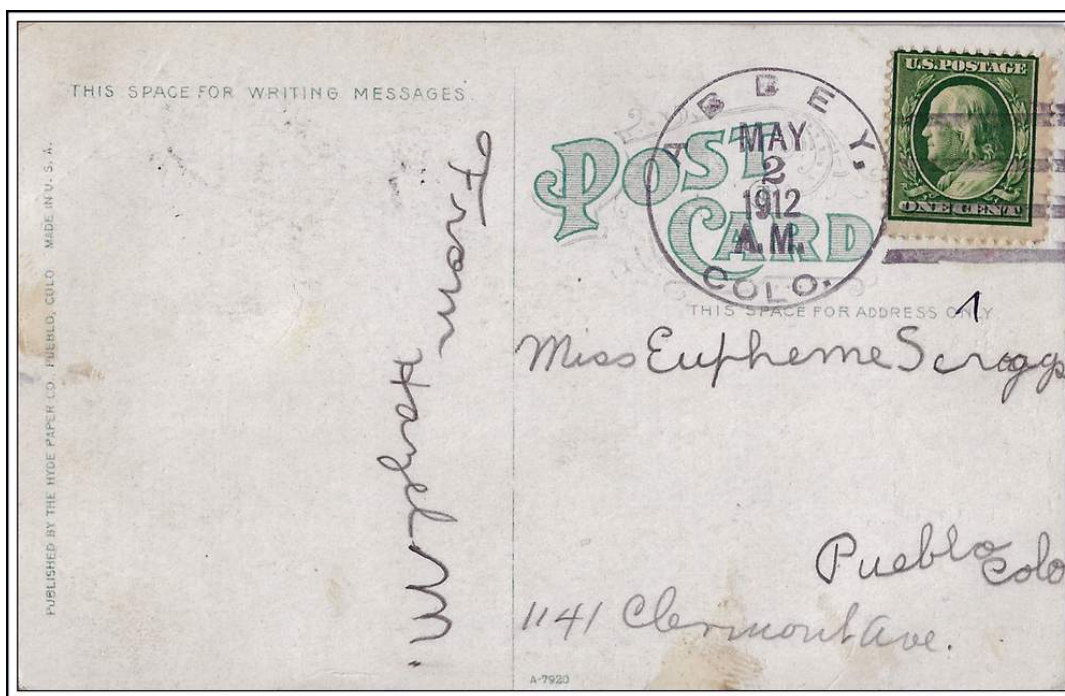 THIS SPACE FOR WRITING MESSAGES.
From Hazel M.
PUBLISHED BY THE HYDE PAPER CO. PUEBLO, COLO MADE IN U.S.A.
POST CARD
ABBEY,
MAY
2
1912
A.M.
COLO.
U.S. POSTAGE
ONE CENT
THIS SPACE FOR ADDRESS ONLY
1
Miss Eupheme Scroggs
Pueblo
Colo
1141 Clermont Ave.
A-7920